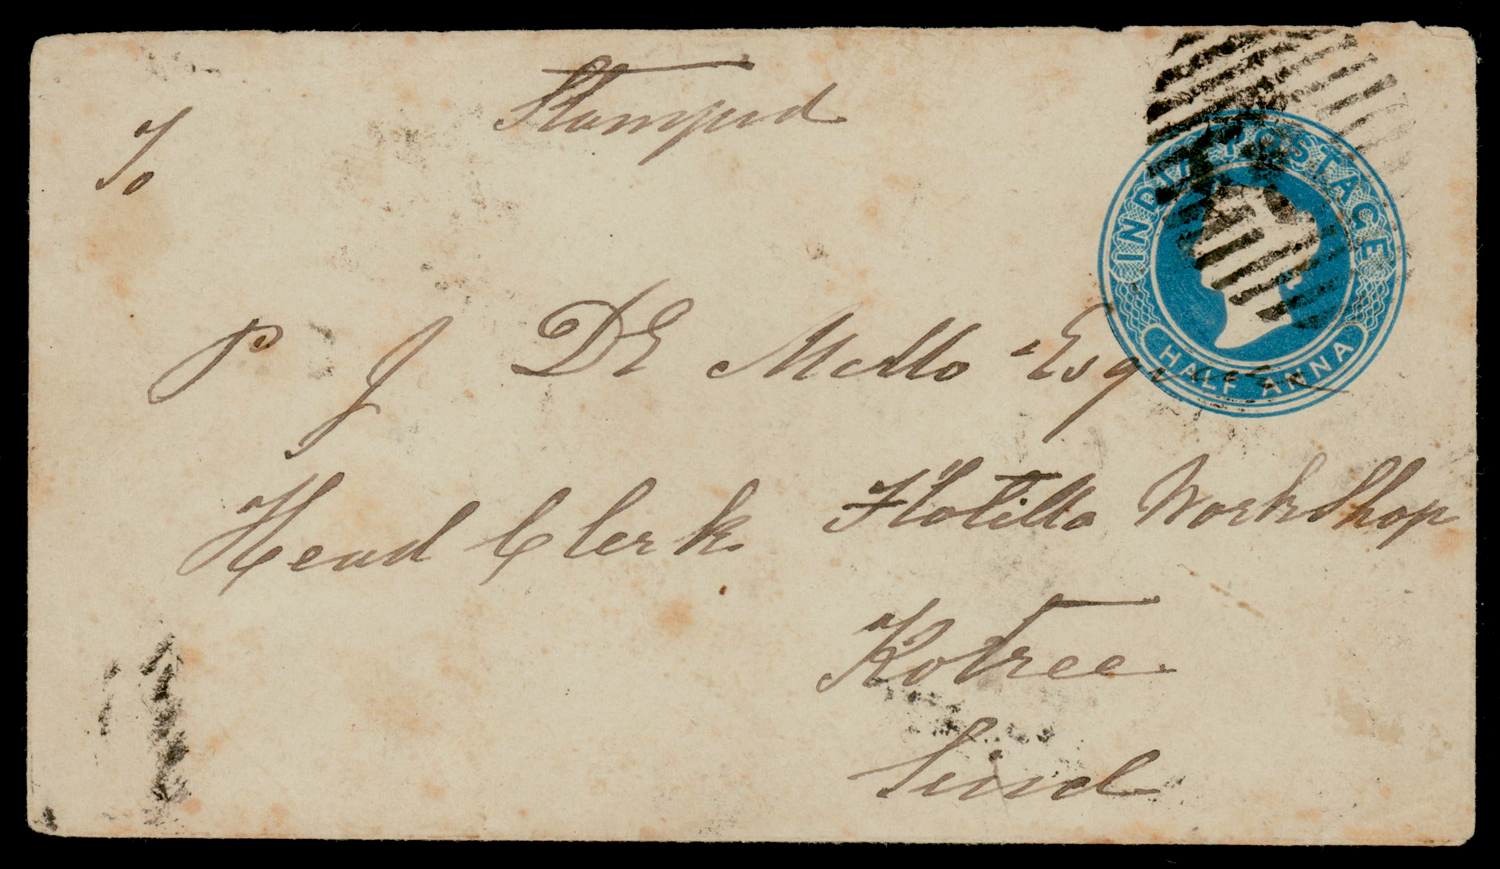 Stamped
To
INDIA POSTAGE
HALF ANNA
P J DE Mello Esqr
Head Clerk Flotilla Workshop
Kotree
Sind